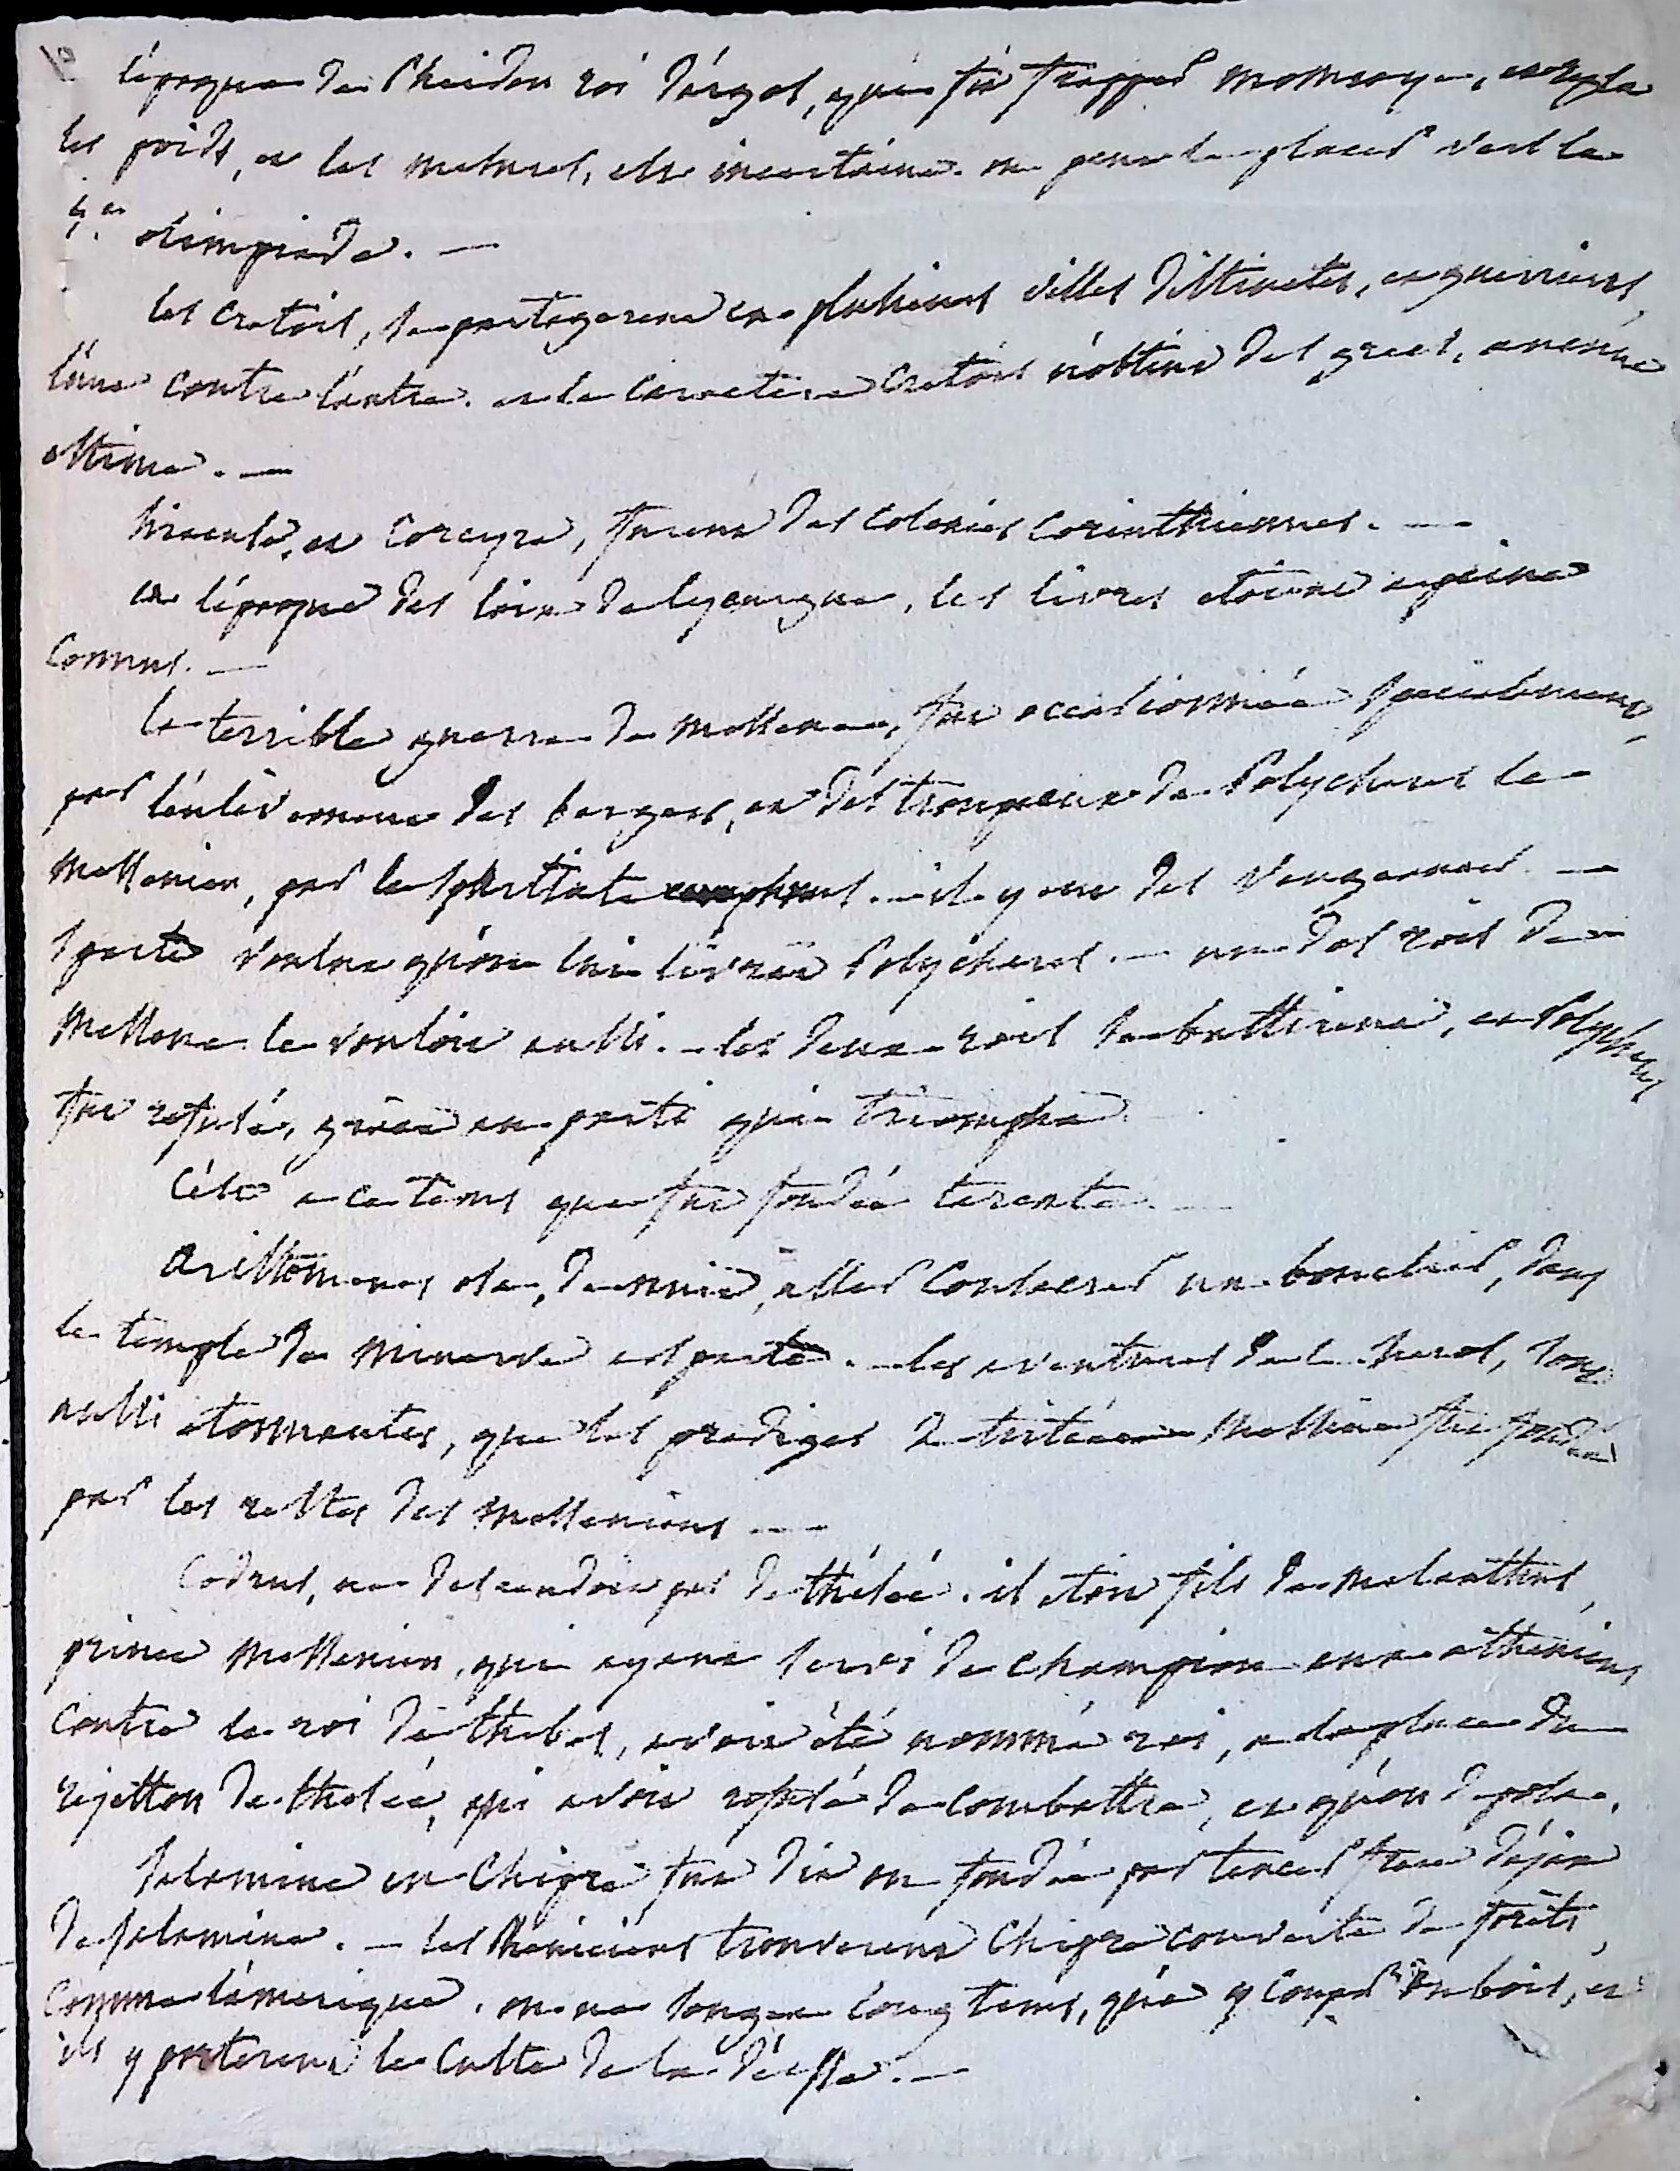 l'époque de Pheidon roi d'argos, qui fit frapper monnoye, et régla
les poids, et les mesures, est incertaine. on peut la placer vers la
olimpiade. —
les cretois, se partagerent en plusieurs villes distinctes, et guerrieres,
l'une contre l'autre. et le caractere cretois n'obtint des grecs, aucune
estime. —
Siracuse, et Corcyre, furent des colonies Corinthiennes. —
a l'époque des loix de lycurgue, les livres etoient a peine
connus. —
la terrible guerre de messene, fut occasionnée specialement,
par l'enlevement des bergers, et des troupeaux de Polychares le
messenien, par le spartiate . — il y eut des vengeances. —
Sparte voulut qu'on lui livrat Polychares. — un des rois de
messene le vouloit aussi. — les deux rois se battirent, et Polychares
fut refusé, grace au parti qui triompha.
C'est a ce tems que fut fondée tarente. —
Aristomenes osa, de nuit, aller consacrer un bouclier, dans
le temple de minerve a sparte. — les aventures de ce heros, sont
aussi etonnantes, que les prodiges de tirtée. messine fut fondée
par les restes des messeniens. —
Codrus, ne descendoit pas de thésée. il etoit fils de melanthus,
prince messenien, qui ayant servi de champion aux atheniens
contre le roi de thebes, avoit été nommé roi, a la place du
rejetton de thesée, qui avoit refusé de combattre, et qu'on deposa.
Salamine en Chipre fut dit on fondée par teucer frere d'ajax
de salamine. — les Pheniciens trouverent Chipre couverte de forêts,
comme l'amerique. on ne songea long tems, qu'a y couper du bois, et
ils y porterent le culte de la déesse. —